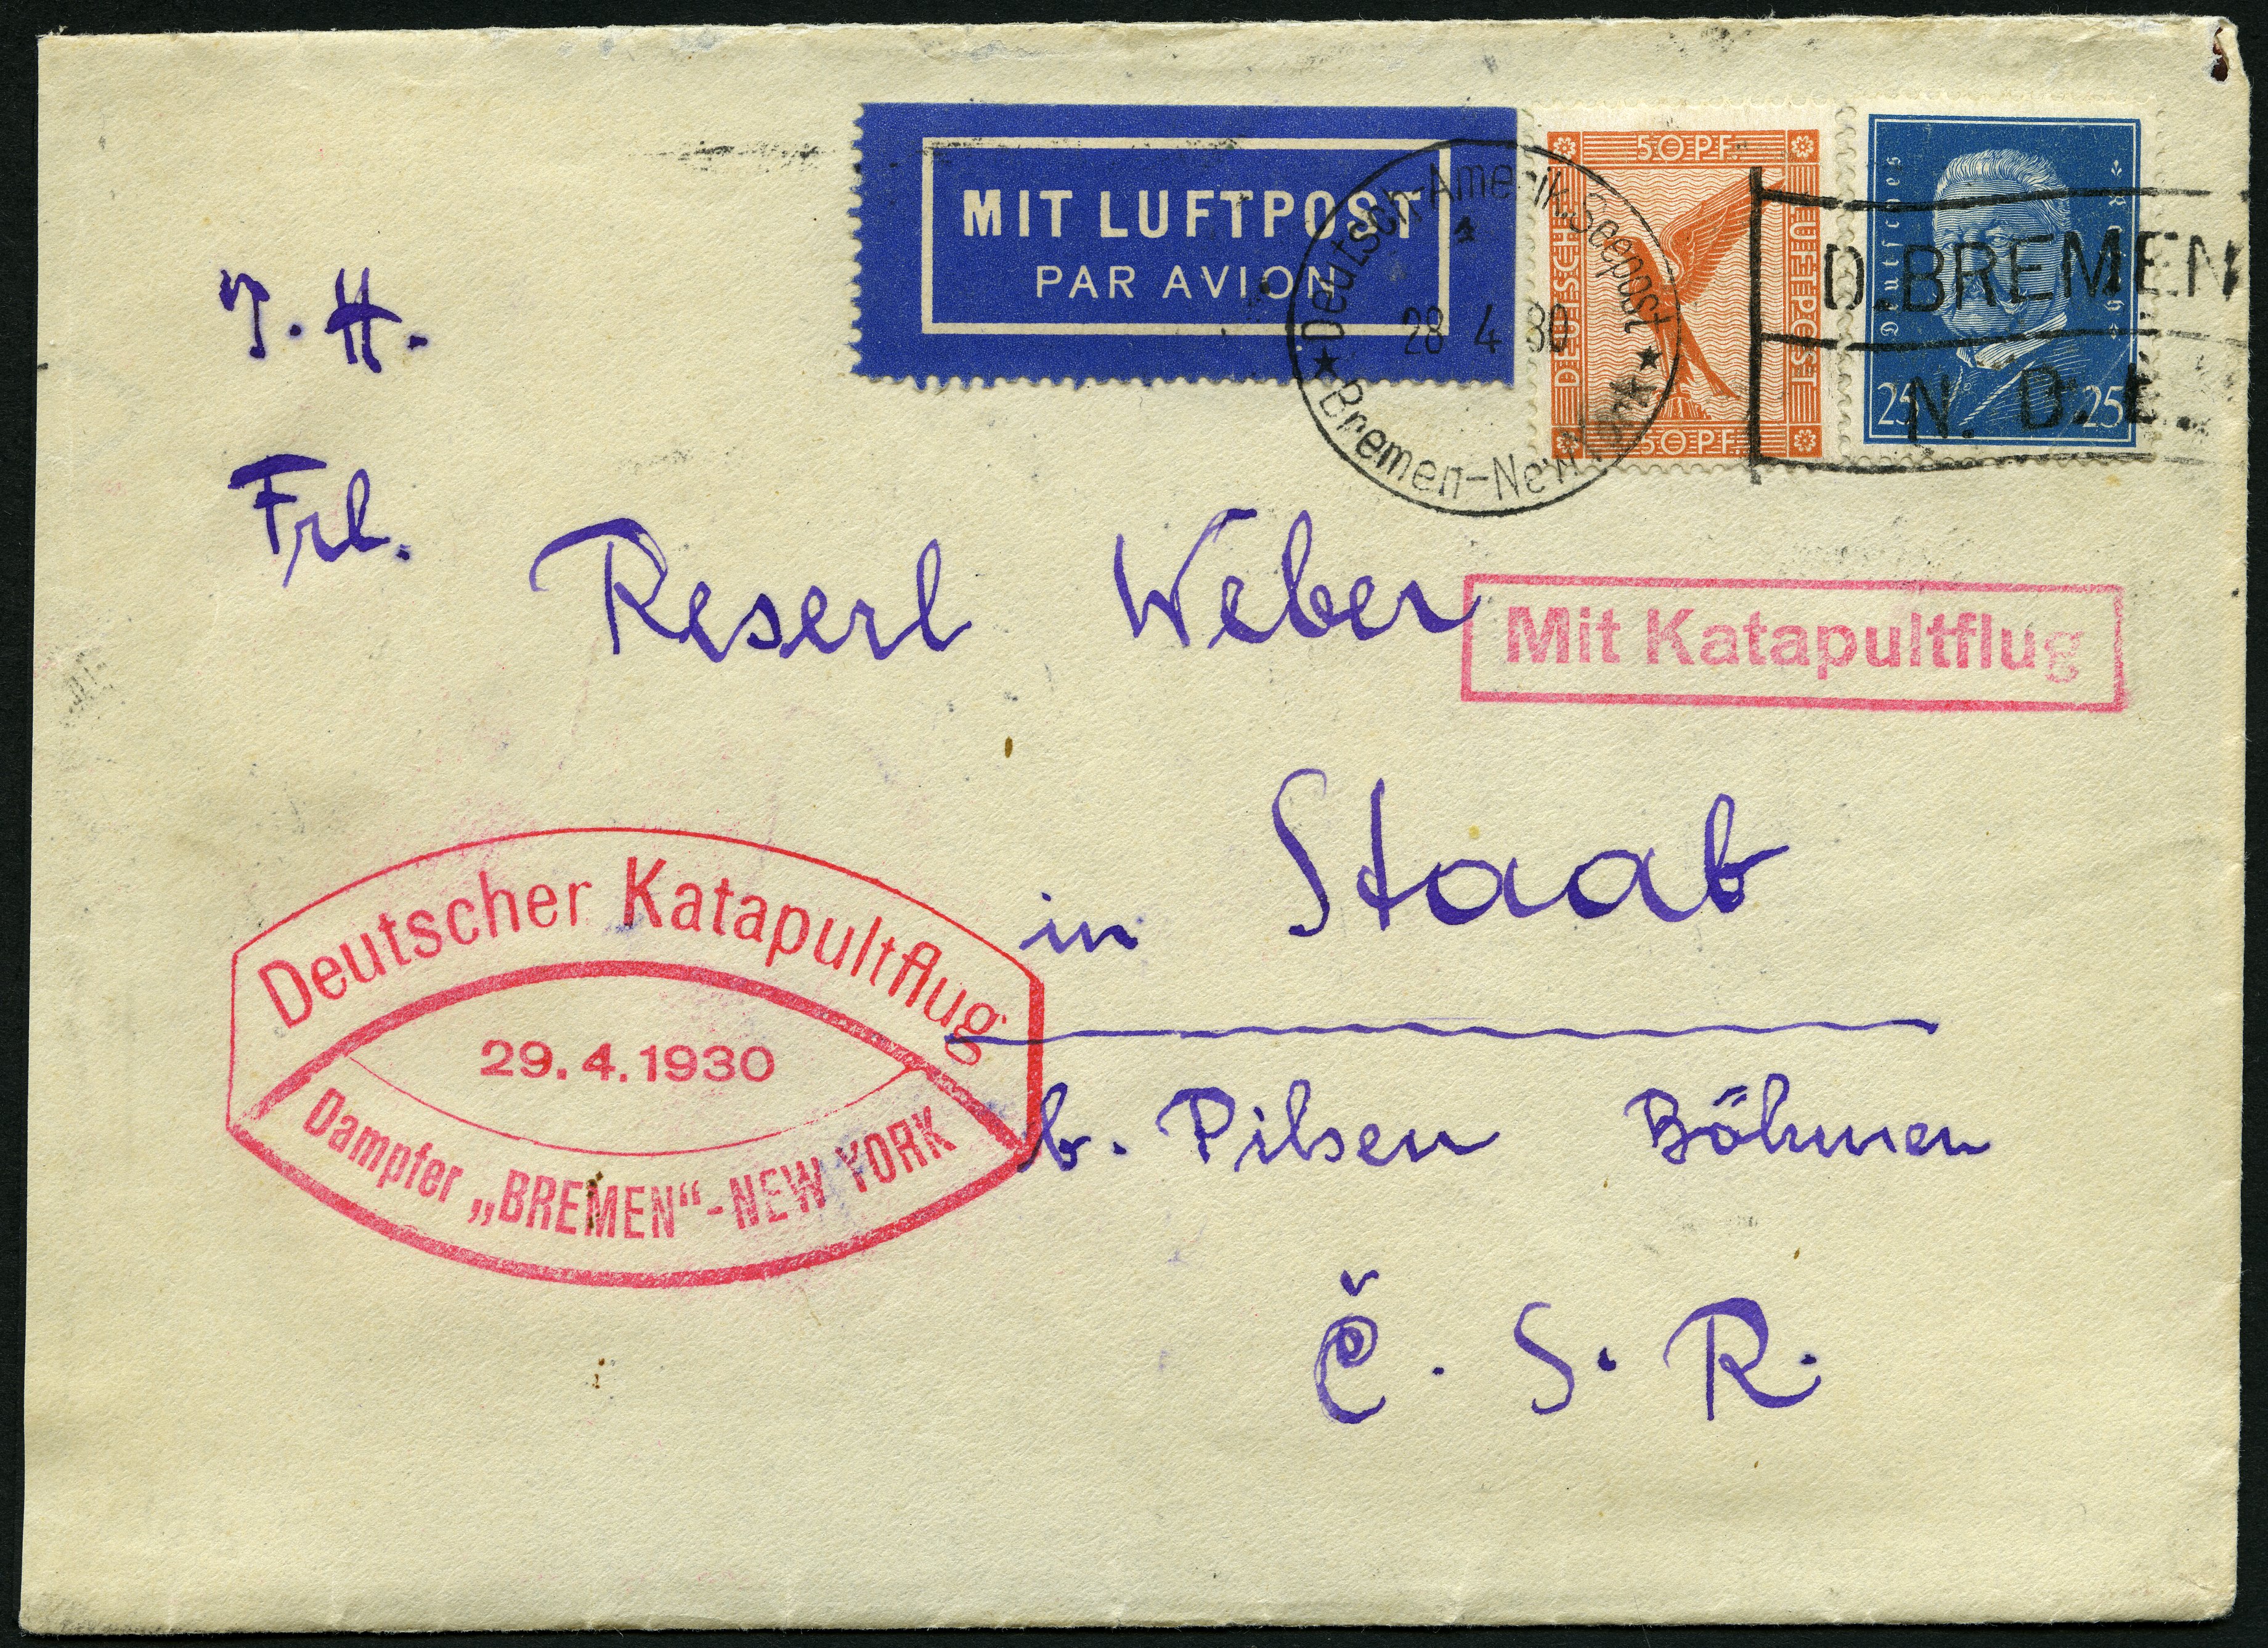 MIT LUFTPOST
PAR AVION
Deutsch-Amerik. Seepost
28 4 30
Bremen-New York
50 PF
DEUTSCHE
LUFTPOST
50 PF
Deutsches
25 25
D. BREMEN
N. D. L.
T. H.
Frl. Reserl Weber
Mit Katapultflug
in Staab
b. Pilsen Böhmen
Č. S. R.
Deutscher Katapultflug
29.4.1930
Dampfer „BREMEN“-NEW YORK